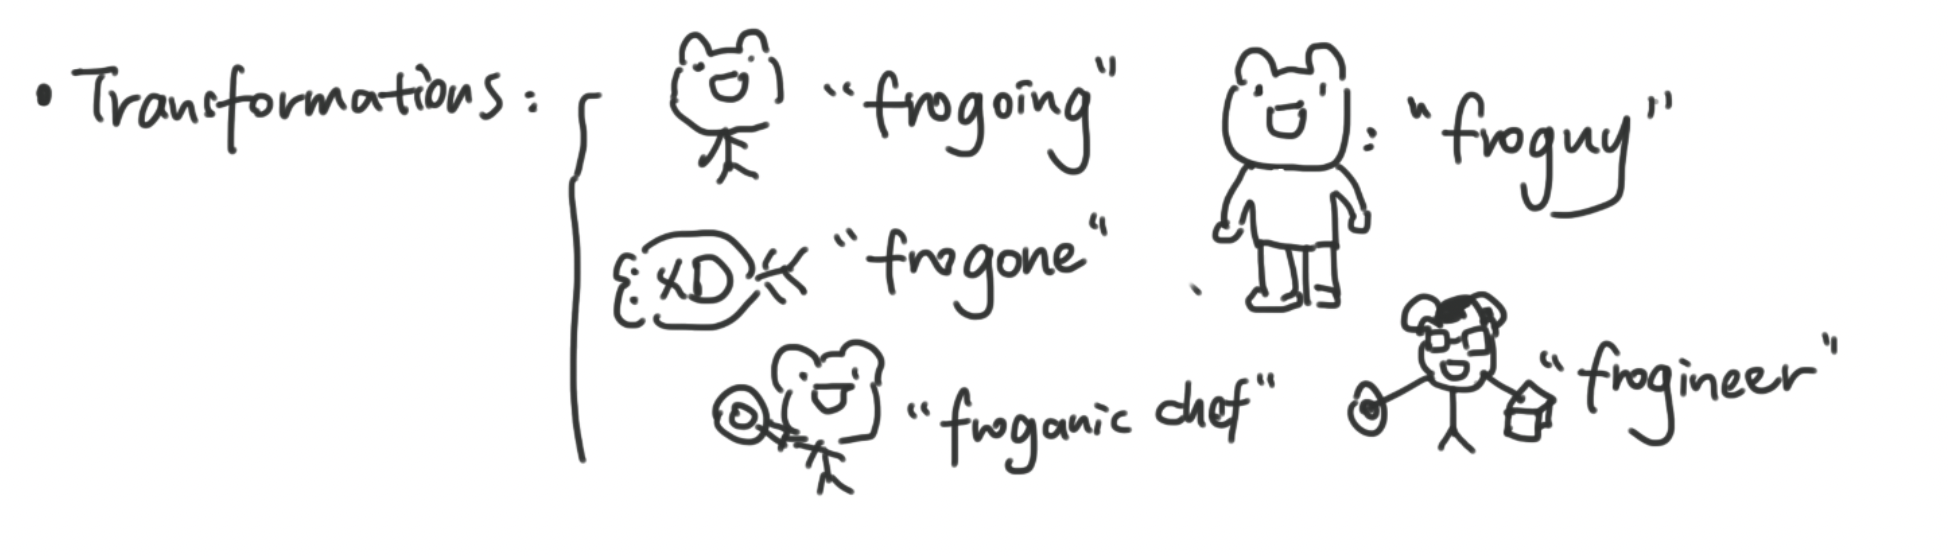 • Transformations: "frogoing" : "froguy"
XD "frogone"
"froganic chef" "frogineer"